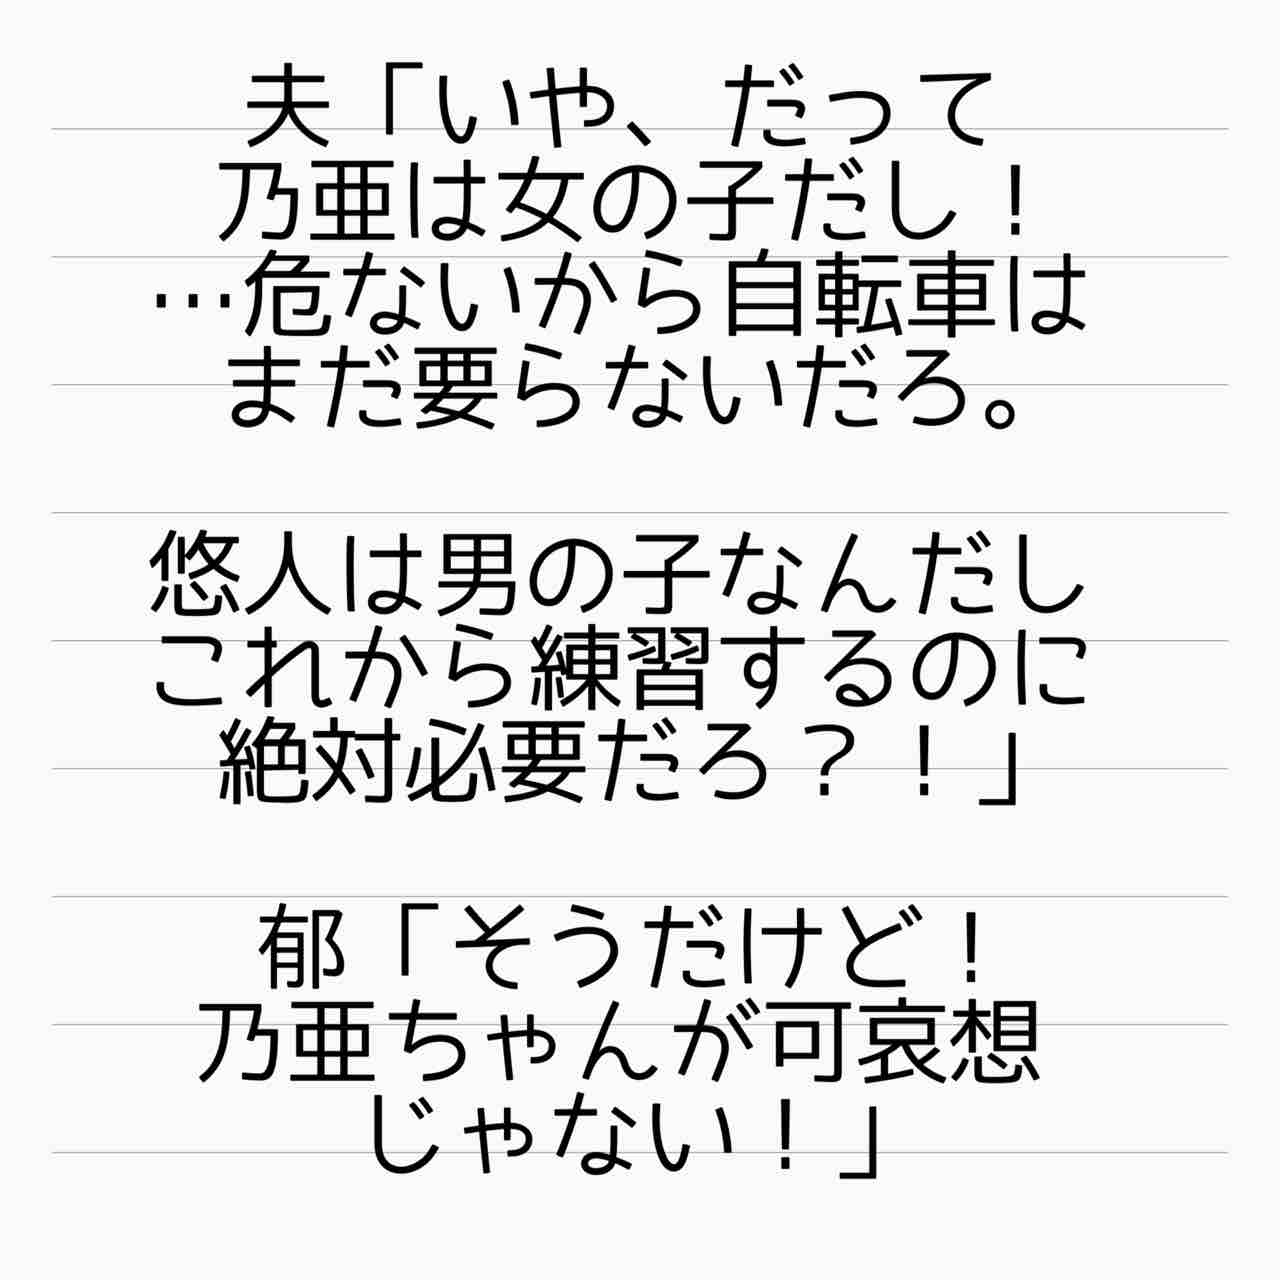 夫「いや、だって
乃亜は女の子だし！
…危ないから自転車は
まだ要らないだろ。
悠人は男の子なんだし
これから練習するのに
絶対必要だろ？！」
郁「そうだけど！
乃亜ちゃんが可哀想
じゃない！」